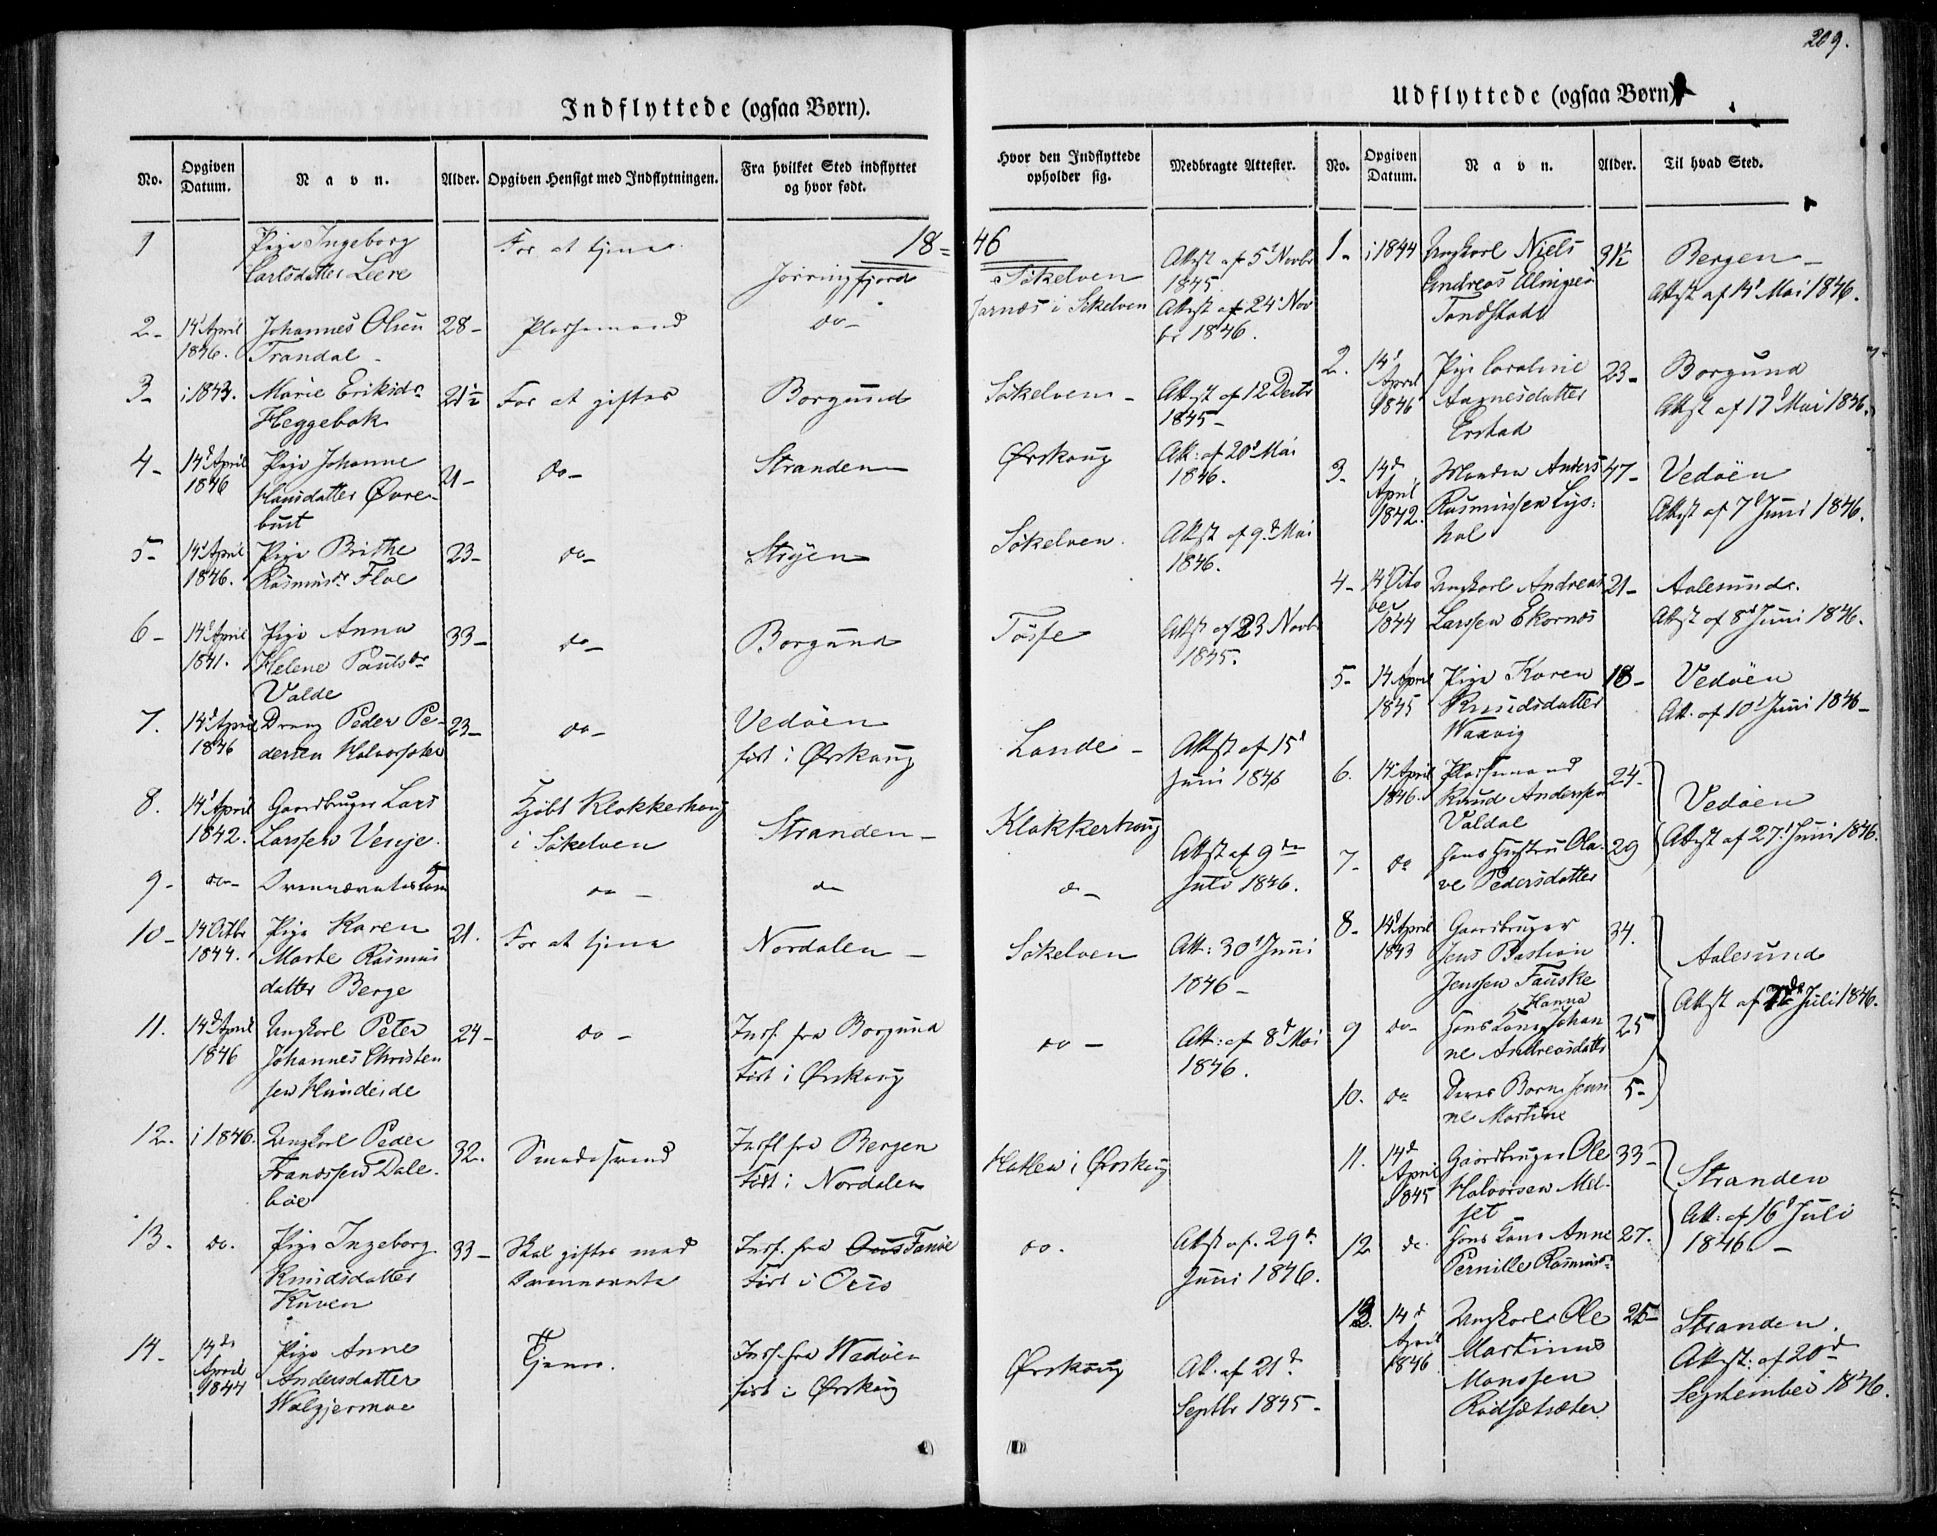 209.
Indflyttede (ogsaa Børn).
No.
Opgiven
Datum.
Navn.
Alder.
Opgiven Hensigt med Indflytningen.
Fra hvilket Sted indflyttet
og hvor født.
Hvor den Indflyttede
opholder sig.
Medbragte Attester.
18=46
1
Pige Ingeborg
Carlsdatter Leere
For at tjene
Jørringfjord
Søkelven
Attst af 5 Novbr
1845
2-
14 April
1846.
Johannes Olsen
Trandal
28-
Plassemand
do-
i Søkelven
Attst af 24 Nov
br 1846.
3-
i 1843.
Marie Eriksdr
Heggebak
21½
For at giftes
Borgund
Søkelven-
Attst af 12 Decbr
1845-
4-
14d April
1846
Pige Johanne
Hansdatter Øvre-
bust
21-
do-
Stranden
Ørskoug
Att: af 20d Mai
1846.
5-
14d April
1846.
Pige Brithe
Rasmusdr Floe
23-
do-
Stryen
Søkelven.
Attst af 9d Mai
1846.
6-
14d April
1841.
Pige Anna
Helene Paulsdr
Valde
33-
do-
Borgund
Tøsse
Attst af 23 Novbr
1845.
7.
14d April
1846
Dreng Peder Pe-
dersen
23-
do-
Vedøen
født i Ørskoug
Lande-
Attst af 15d
Juni 1846
8.
14d April
1842.
Gaardbruger Lars
Larssen Venje.
Kjøbt Klokkerhoug
i Søkelven
Stranden-
Klokkerhoug
Attst af 9de
Juli 1846.
9-
do-
do-
do
do-
10-
14 Octbr
1844.
Pige Karen
Marte Rasmus
datter Berge
21.
For at tjene
Nordalen-
Søkelven
Att: 30d Juni
1846-
11.
14d April
1846
Ungkarl Peter
Johannes Christen
sen Hundeide
24-
do-
Indf. fra Borgund
Født i Ørskoug
do-
Att: af 8d Mai
1846.
12.
i 1846.
Ungkarl Peder
Frandssen Dale-
bøe
32.
Smedesvend
Indfl fra Bergen
Født i Nordalen
Hatlen i Ørskoug
13.
do.
Pige Ingeborg
Knudsdatter
Kuven
33-
Skal giftes med
Indf. fra Fanøe
Født i Ouus
do.
Attst af 29d
Juni 1846.
14-
14de
April
1844
Pige Anne
Andersdatter
Walgjermoe
Tjene.
Indf. fra Wedøen
født i Ørskoug
Ørskoug
Att: af 21d
Septbr 1845-
Udflyttede (ogsaa Børn)
No.
Opgiven
Datum.
Navn.
Alder.
Til hvad Sted.
1-
i 1844
Ungkarl Niels
Andreas
Tandstad
31½
Bergen-
Attst af 14d Mai 1846.
2.
14d
April
1846
Pige Caroline
Aagnesdatter
Erstad
23-
Borgund
Attst af 17d Mai 1846.
3-
14de
April
1842.
Manden Anders
Rasmussen Lys-
hol
47-
Vedøen
Attst af 7d Juni 1846.
4-
14 Octo
ber
1844
Ungkarl Andreas
Larssen Ekornes
21-
Aalesund.
Attst af 8d Juni 1846.
5-
14 April
1845
Pige Karen
Knudsdatter
Waavig
18-
Vedøen
Att. af 10d Juni 1846-
6.
14 April
1846.
Plassmand
Knud Anderssen
Valdal
24-
Vedøen
Attst af 27d Juni 1846.
7-
do
Hans Hustru Ola-
ve Pedersdatter
29
8-
14d April
1843
Gaardbruger
Jens Bastian
Jenssen Fauske
34.
Aalesund
Attst af Juli 1846.
9
do-
Hanna
Hans Kone Johan
ne Andreasdatter
25
10.
do
Deres Barn Jen
ne Martine
5-
11.
14d
April
1845
Gaardbruger Ole
Halvorsen Mel-
set
33-
Stranden
Att: af 16d Juli
1846-
12
do.
Hans Kone Anne
Pernille Rasmusd:
27.
13.
14d
April
1846
Ungkarl Ole
Martinus
Monssen
Rødsætsæter
25-
Stranden.
Attst: af 20d
September 1846.